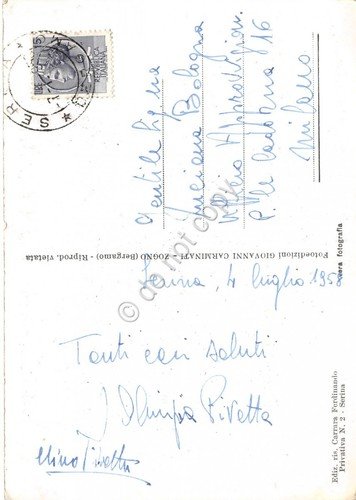 Serina, 4 luglio 1958
Tanti cari saluti
Olimpia Pivetta
Pivetta
Gentile Sig.na
Luciana Bologna
P.le Cadorna 16
Milano
Fotoedizioni GIOVANNI CARMINATI - ZOGNO (Bergamo) - Riprod. vietata
Vera fotografia
Ediz. ris. Carrara Ferdinando
Privativa N. 2 - Serina
do not copy